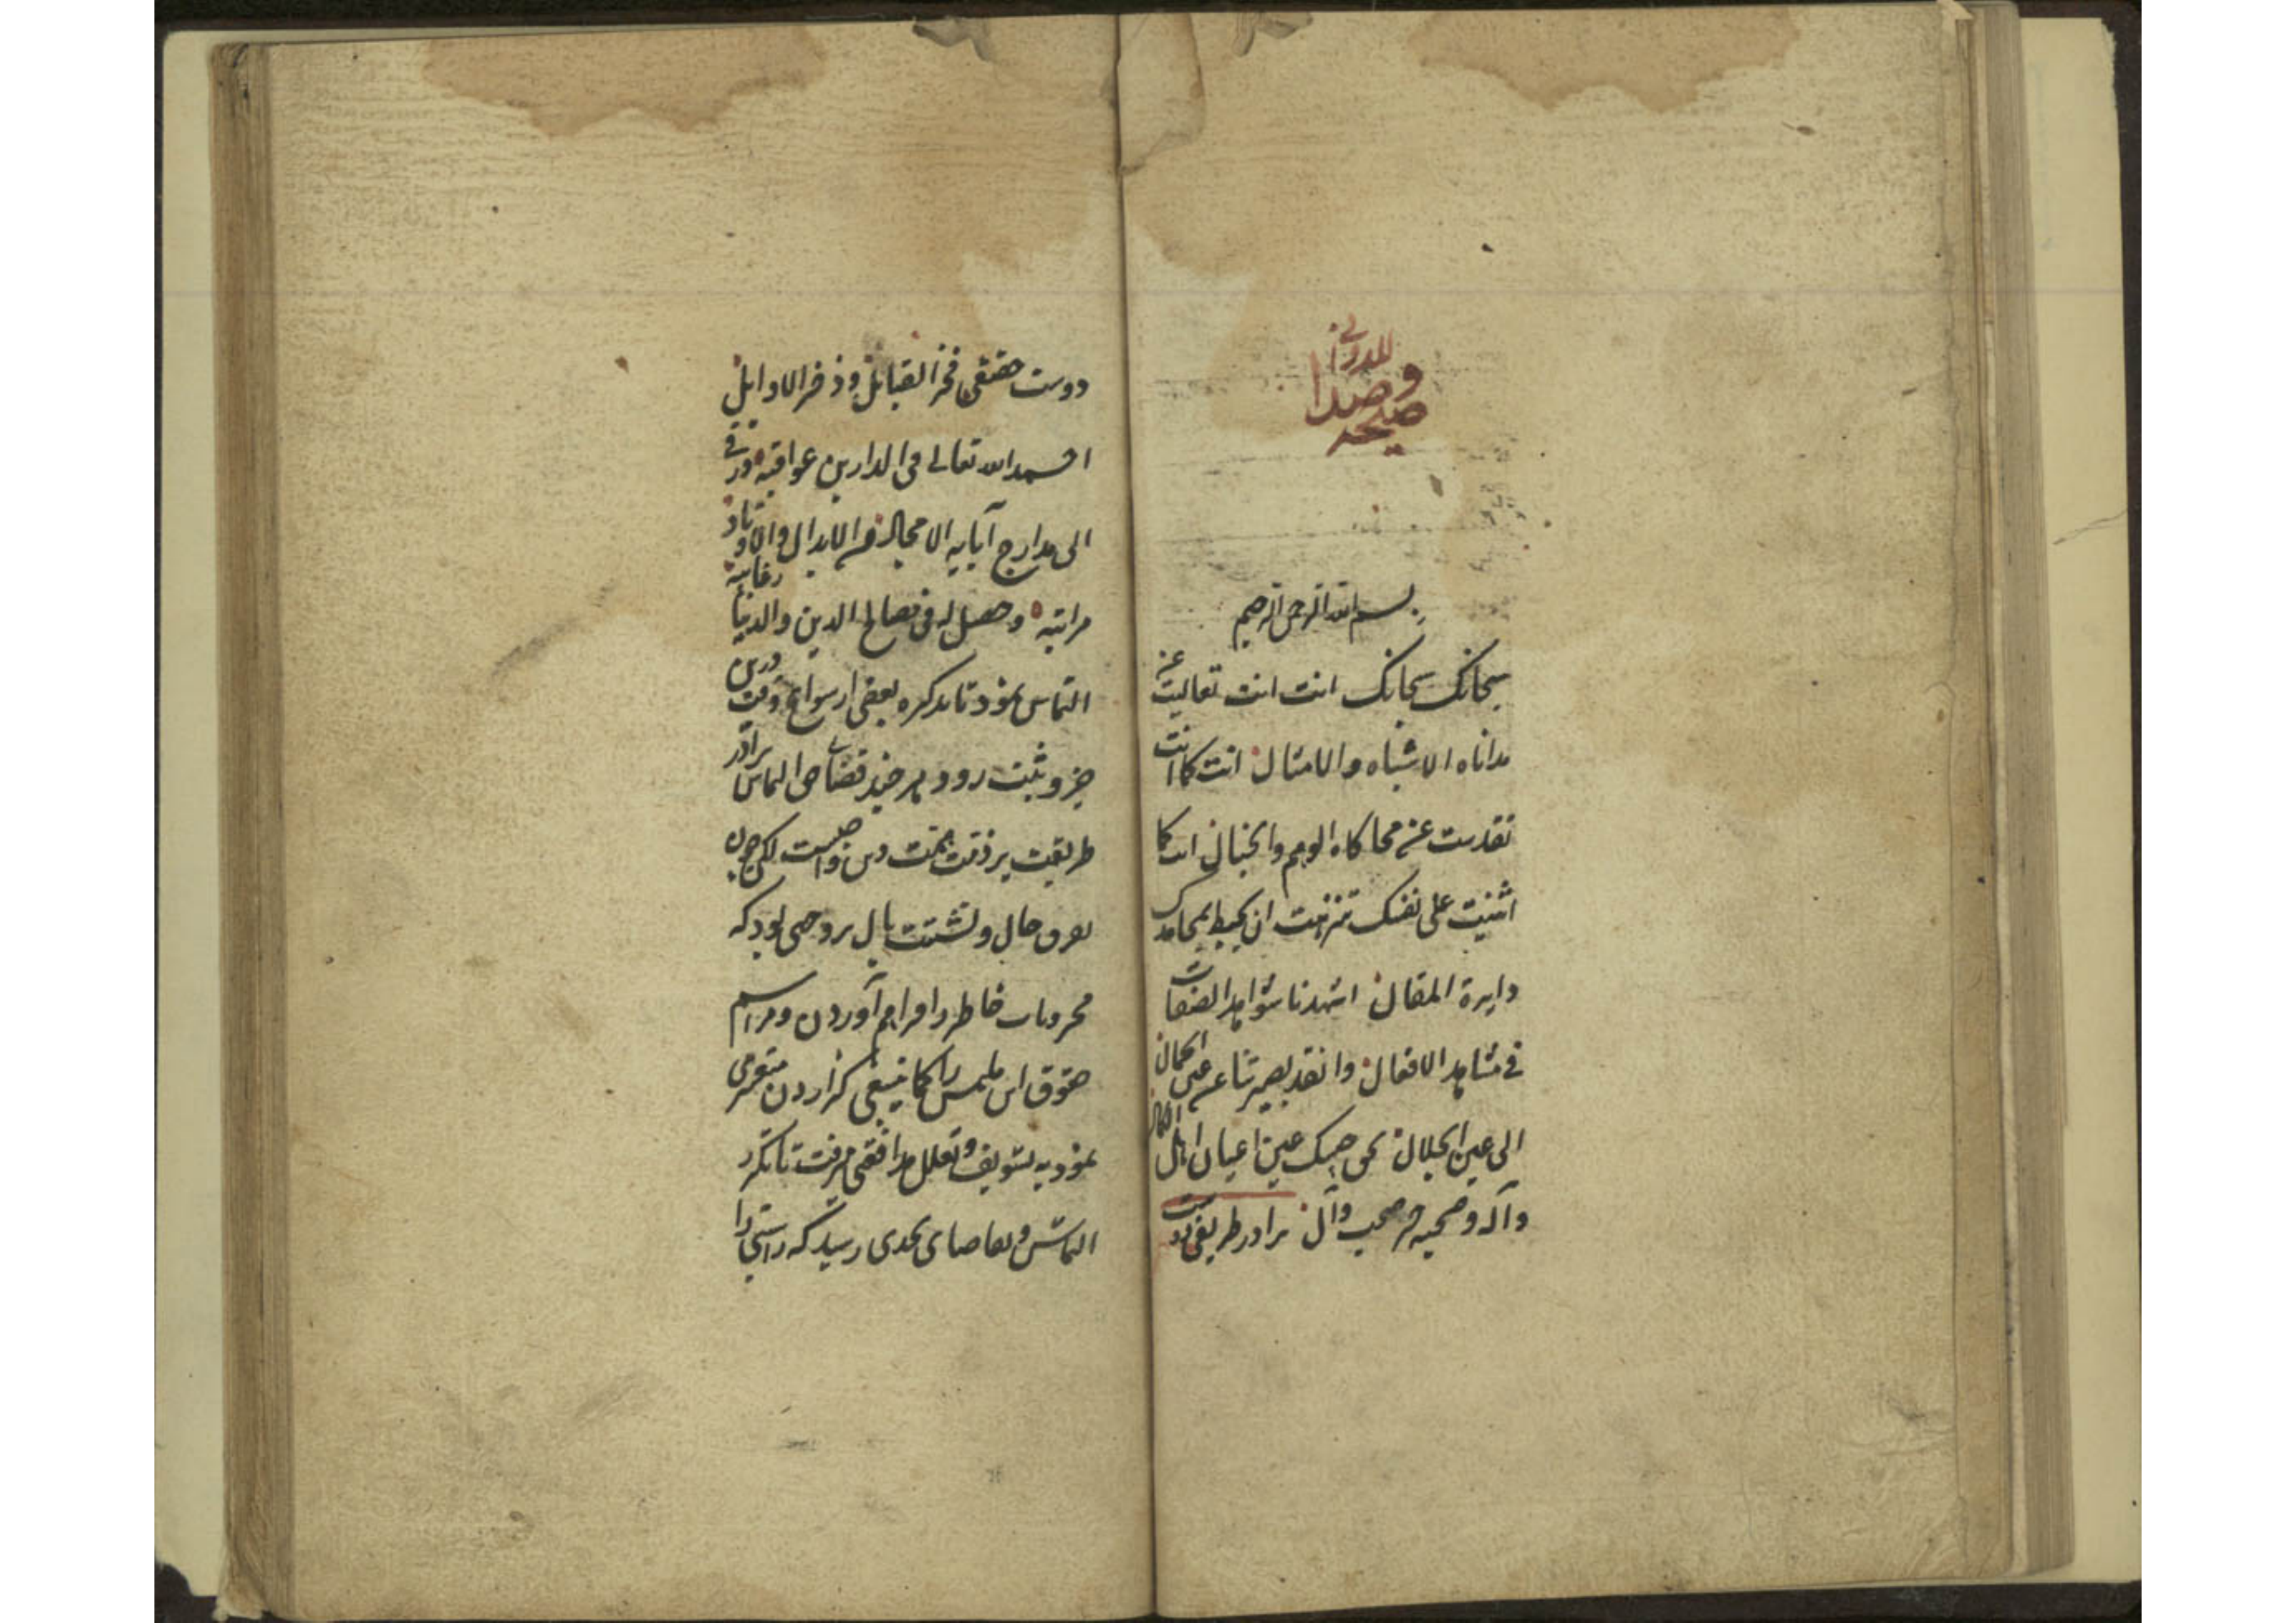 صیحه
وصدا
للدوانی
بسم الله الرحمن الرحیم
سبحانک سبحانک انت انت تعالیت عن
مداناه الاشباه والامثال انت کما انت
تقدست عن محاکاه الوهم والخیال انت کما
اثنیت علی نفسک تنزهت ان یحیط بمحامدک
دایرة المقال اشهدنا شواهد الصفات
فی مشاهد الافعال وانقد بصیرتنا عن عین الکمال
الی عین الجلال بحق حبیبک عین اعیان اهل الکمال
وآله وصحبه خیر صحب وآل برادر طریقی
دوست حقیقی فخر القبایل وذخر الاوایل
احمد الله تعالی فی الدارین عواقبه ورقی
الی مدارج آبایه الامجاد من الابدال والاوتاد
مراتبه وحصل له فی مصالح الدین والدنیا رغایبه
التماس نمود تا تذکره بعضی از سوانح وقت درین
جزو ثبت رود هر چند قضای حق التماس برادر
طریقت بر ذمت همت من واجبست لکن چون
تفرق حال وتشتت بال بر وجهی بود که
خاطر را فراهم آوردن ومراسم
حقوق این ملتمس را کما ینبغی گزاردن متعسر می
نمود به تسویف وتعلل مدافعتی میرفت تا تکرر
التماس وتقاضای بحدی رسید که راستی را